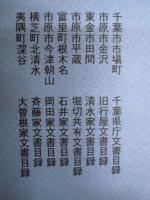 千葉市市場町　千葉県庁文書目録
市原市金沢　旧行屋文書目録
東金市田間　清水家文書目録
市原市平蔵　堀切共有文書目録
富里町根木名　石井家文書目録
市原市今津朝山　岡田家文書目録
横芝町北清水　斉藤家文書目録
夷隅町深谷　大曽根家文書目録